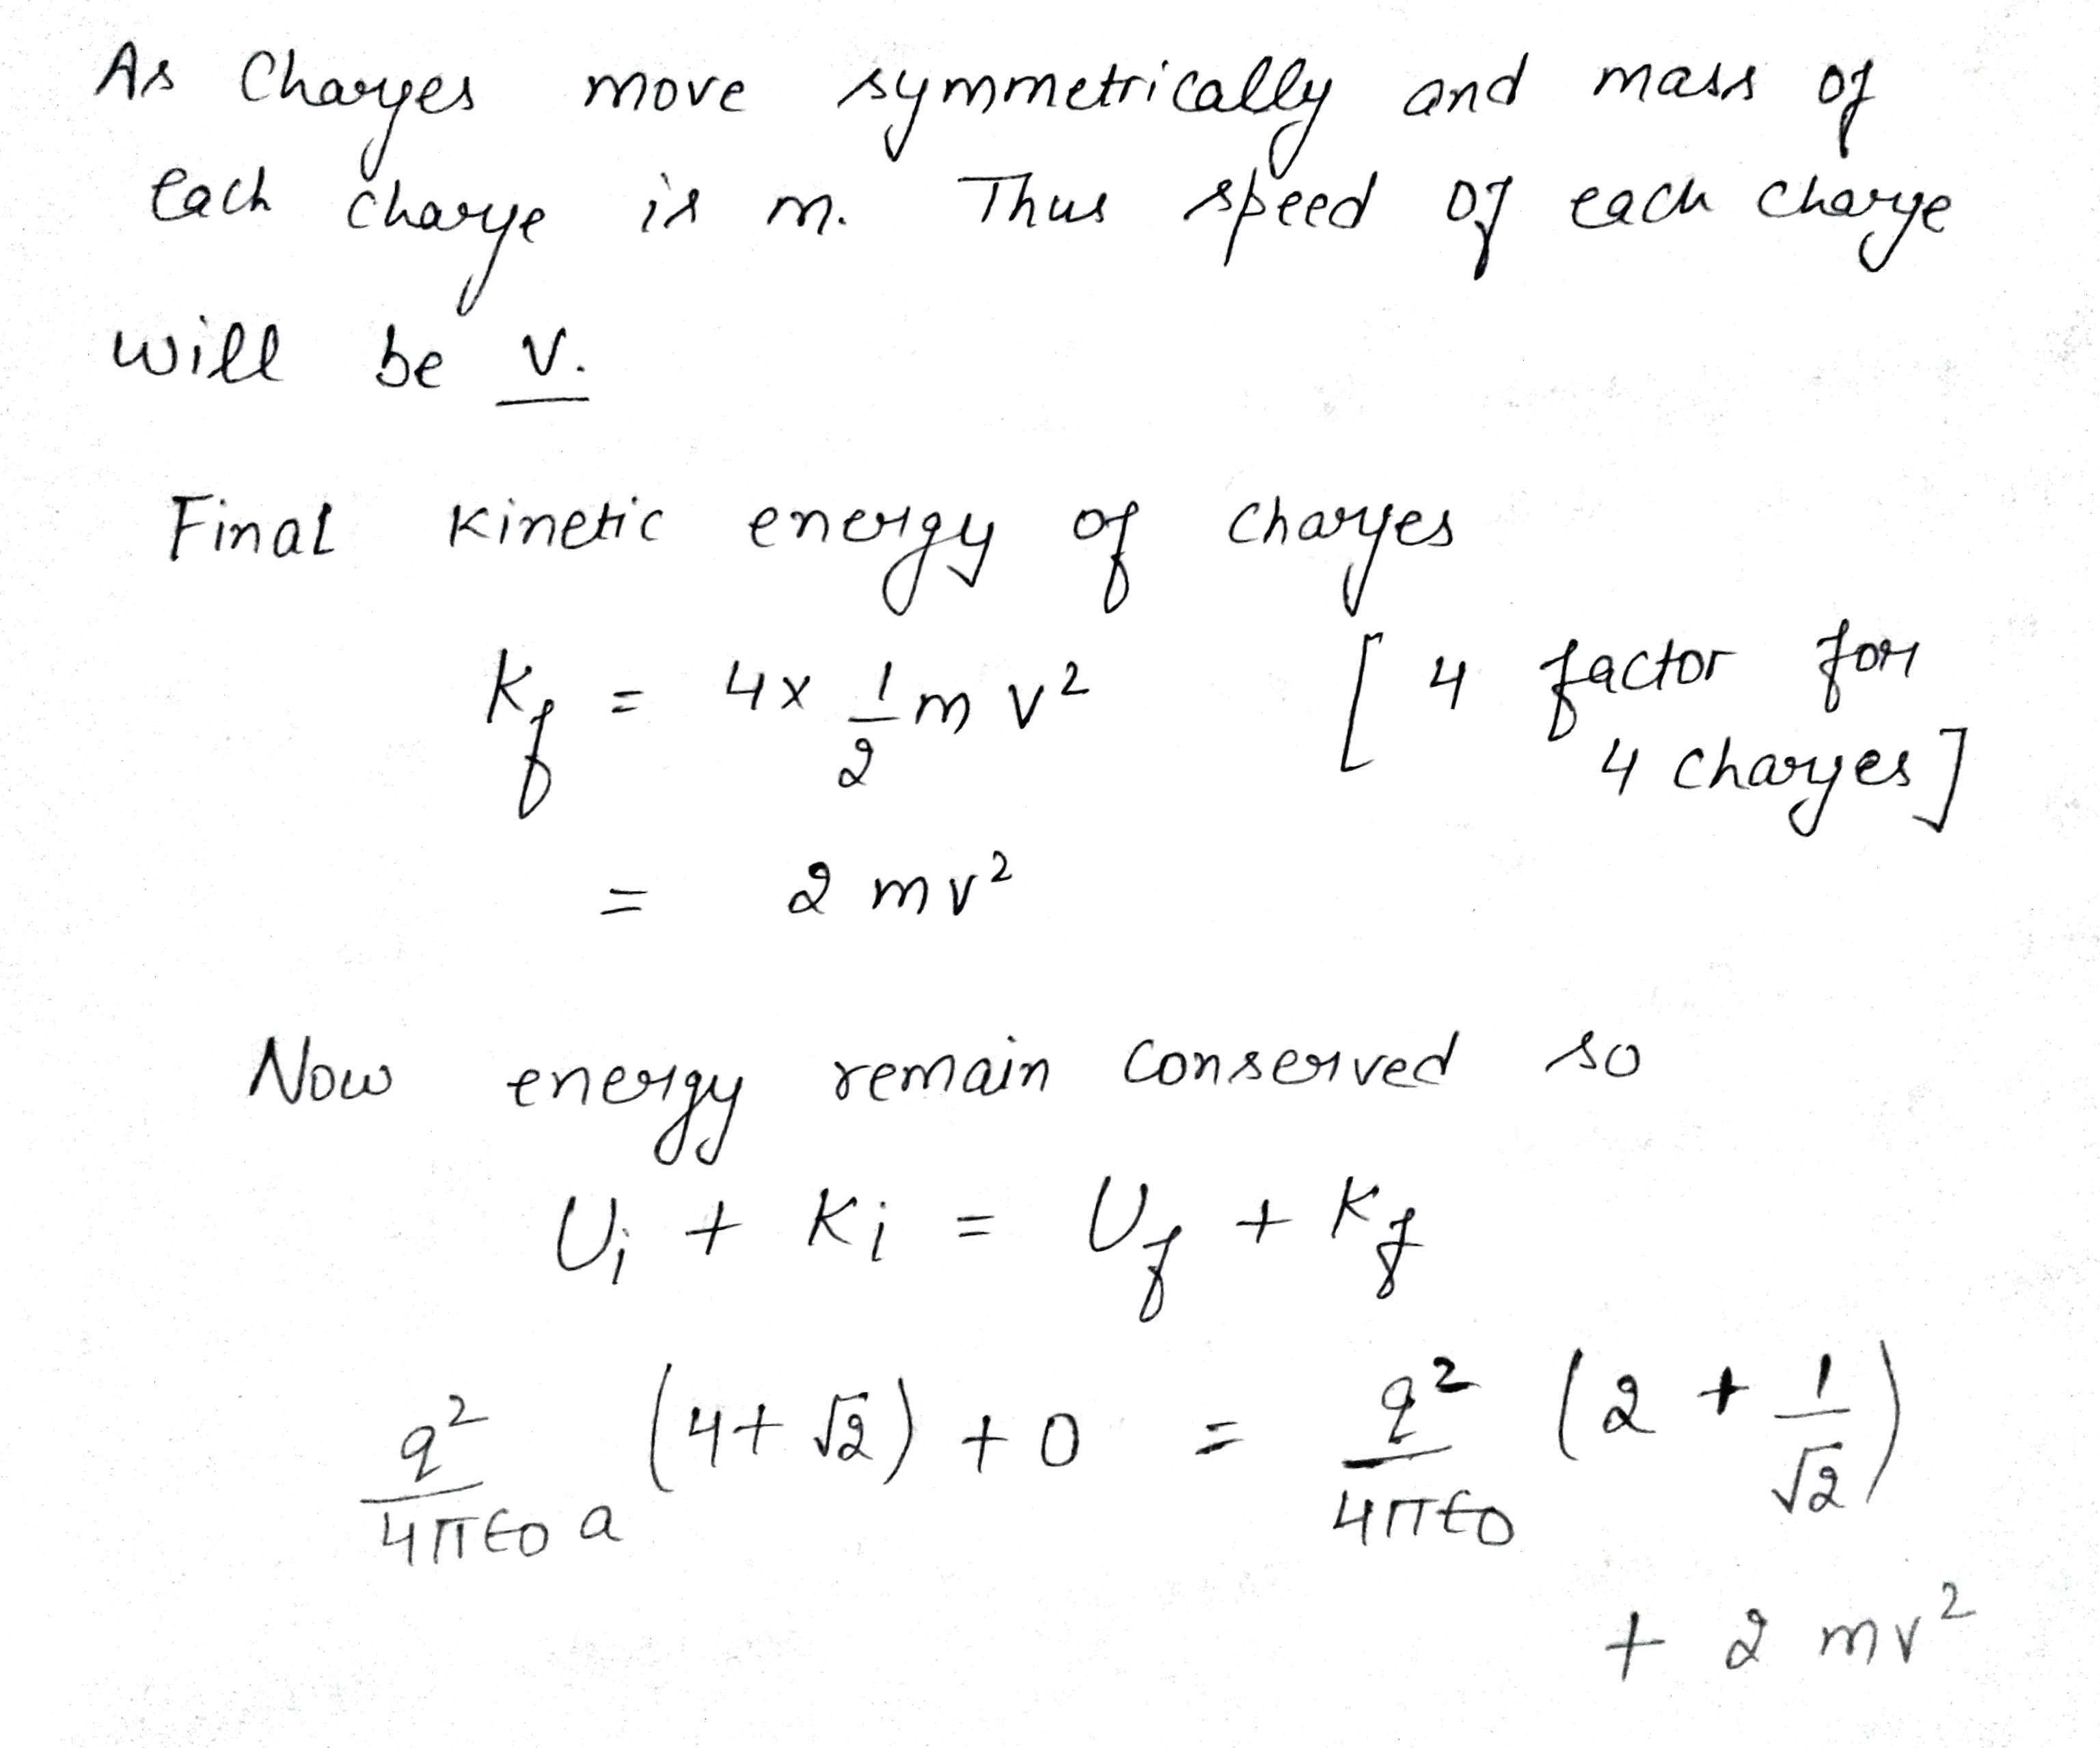 As Charges move symmetrically and mass of
each charge is m. Thus speed of each charge
will be v.
Final kinetic energy of charges
K_f = 4 × 1/2 m v² [ 4 factor for
4 charges ]
= 2 mv²
Now energy remain conserved so
U_i + K_i = U_f + K_f
q²/4π∈0 a (4 + √2) + 0 = q²/4π∈0 (2 + 1/√2)
+ 2 mv²